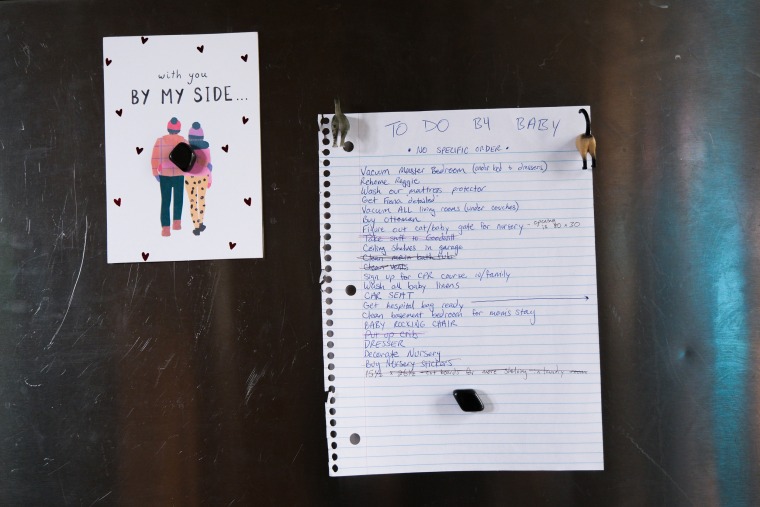 with you
BY MY SIDE...
TO DO BY BABY
• NO SPECIFIC ORDER •
Vacuum Master Bedroom (under bed + dressers)
Rehome Reggie
Wash our mattress protector
Get Fiesta detailed
Vacuum ALL living rooms (under couches)
Buy Ottoman
Figure out cat/baby gate for nursery - opening is 80 x 30
Take stuff to Goodwill
Ceiling shelves in garage
Clean main bath tub
Clean vents
Sign up for CPR course w/family
Wash all baby linens
CAR SEAT
Get hospital bag ready
Clean basement bedroom for mom's stay
BABY ROCKING CHAIR
Put up crib
DRESSER
Decorate Nursery
Buy Nursery stickers
15 1/2 x 26 1/2 boards for more shelving